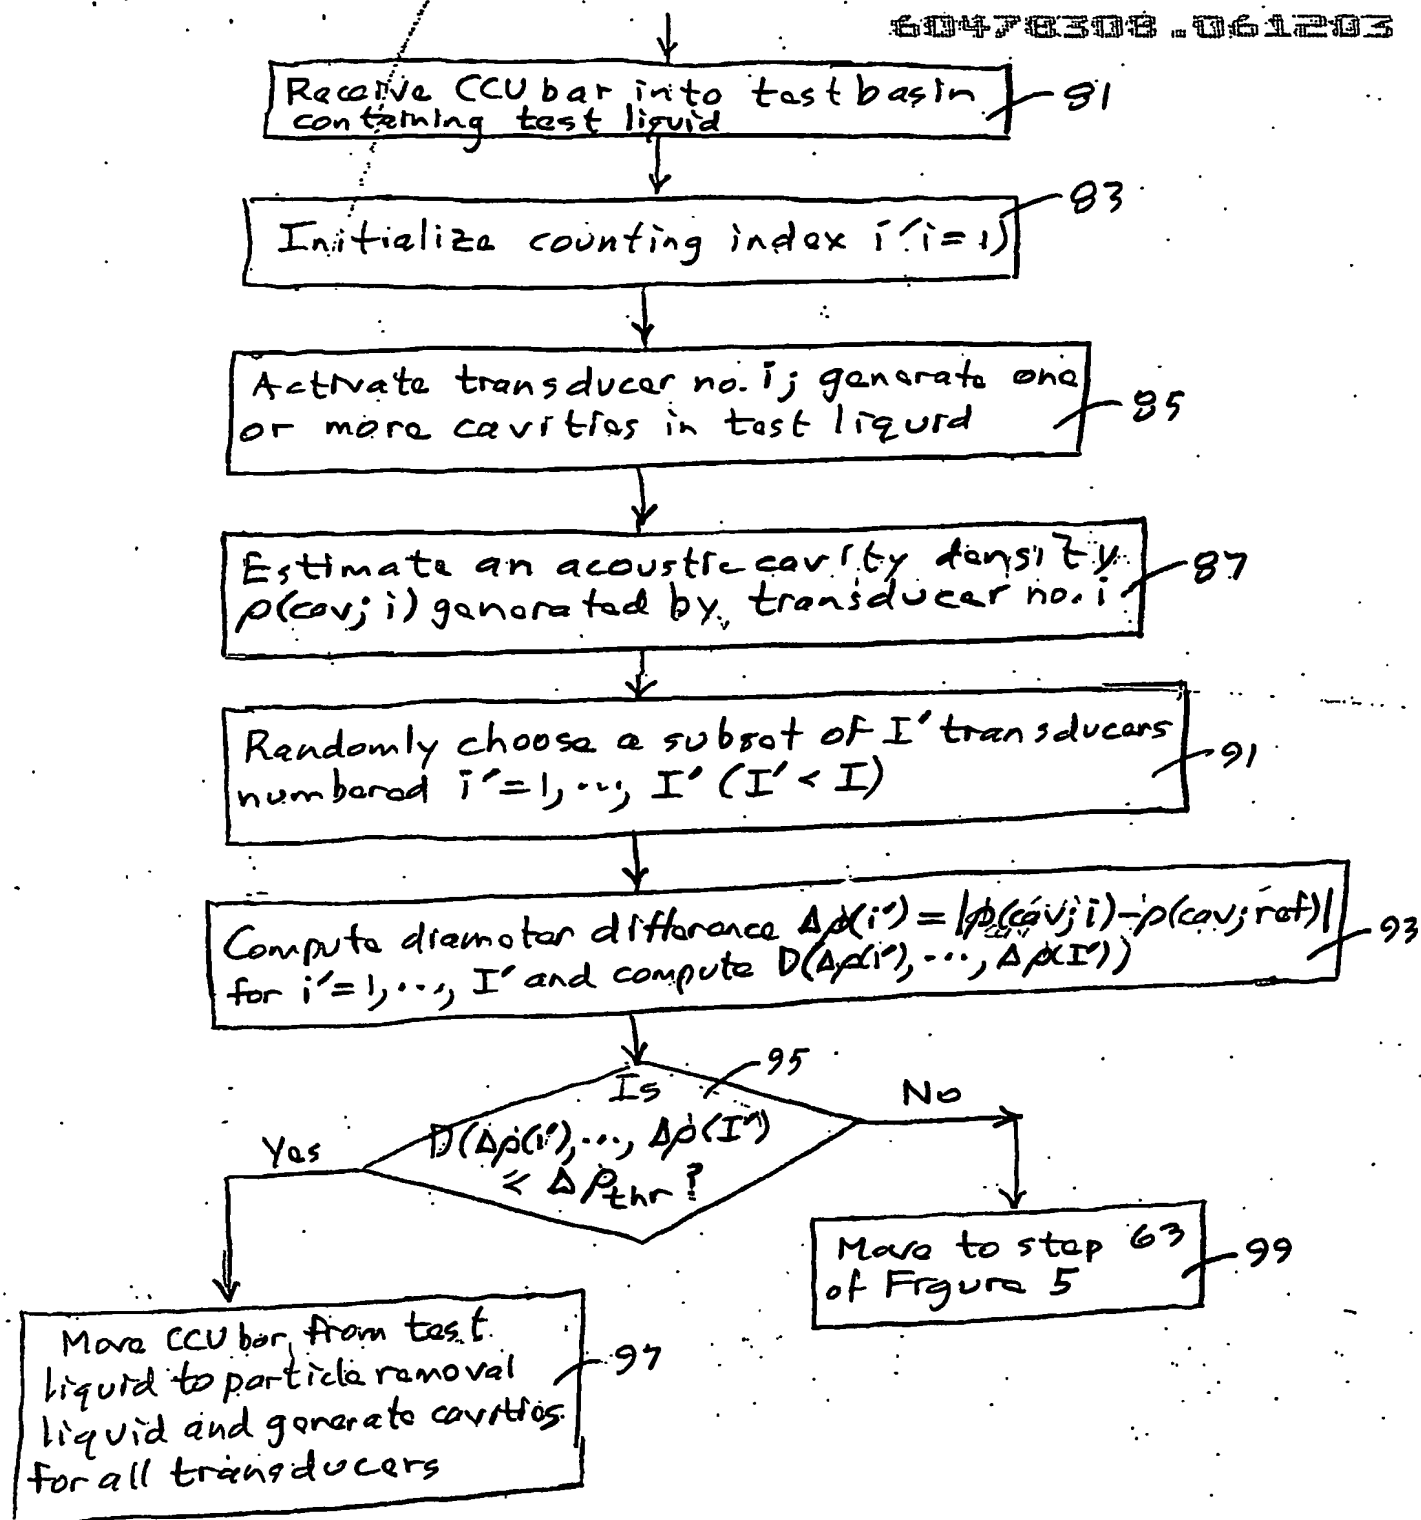 60478308.061203
Receive CCU bar into test basin
containing test liquid
81
Initialize counting index i (i=1)
83
Activate transducer no. i; generate one
or more cavities in test liquid
85
Estimate an acoustic cavity density
ρ(cav; i) generated by transducer no. i
87
Randomly choose a subset of I' transducers
numbered i'=1, ..., I' (I' < I)
91
Compute diameter difference Δρ(i') = |ρ(cav; i) - ρ(cav; ref)|
for i'=1, ..., I' and compute D(Δρ(i'), ..., Δρ(I'))
93
Is
D(Δρ(i'), ..., Δρ(I')
≤ Δρthr ?
95
Yes
No
Move to step 63
of Figure 5
99
Move CCU bar, from test
liquid to particle removal
liquid and generate cavities
for all transducers
97